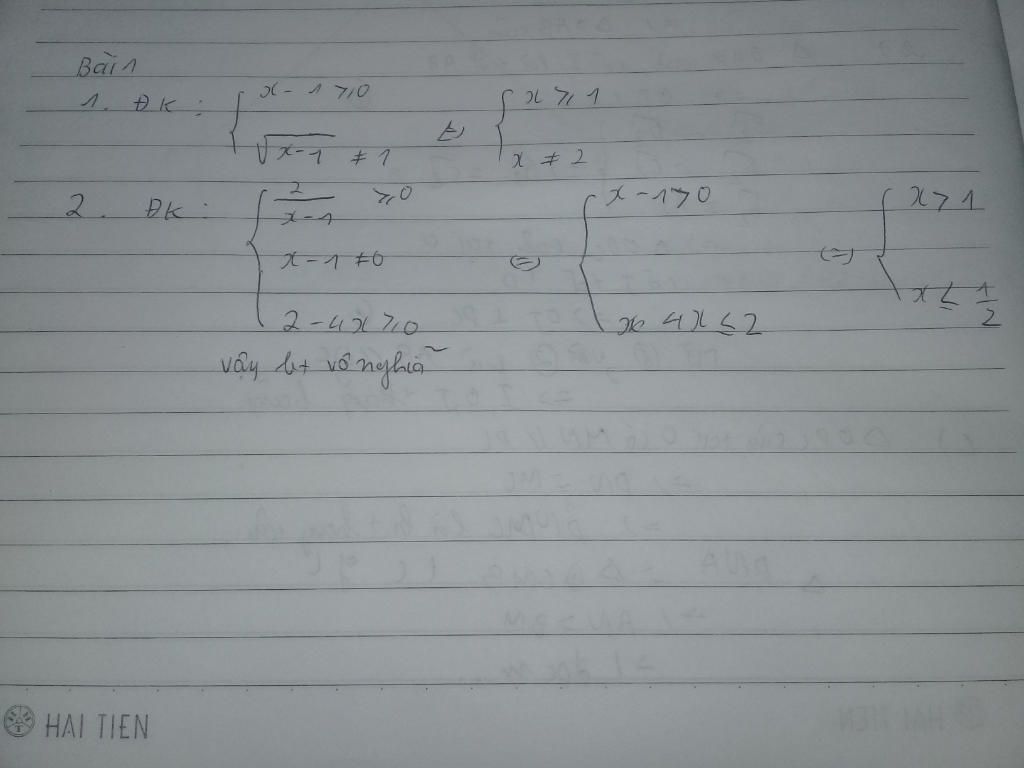 Bài 1
1. ĐK: { x - 1 ⩾ 0
√(x-1) ≠ 1 (=) { x ⩾ 1
x ≠ 2
2. ĐK: { 2/(x-1) ⩾ 0
x - 1 ≠ 0
2 - 4x ⩾ 0 (=) { x - 1 > 0
4x ≤ 2 (=) { x > 1
x ≤ 1/2
vậy bt vô nghĩa
HAI TIEN